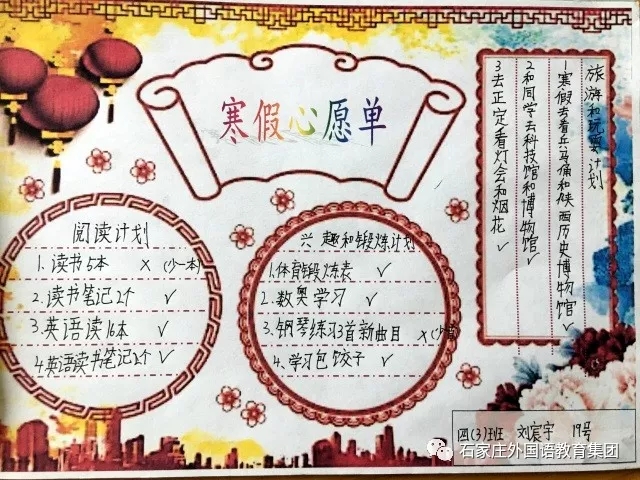 寒假心愿单
阅读计划
1.读书5本 x (少一本)
2.读书笔记2个 ✓
3.英语读16本 ✓
4.英语读书笔记2个 ✓
兴趣和锻炼计划
1.体育锻炼表 ✓
2.数奥学习 ✓
3.钢琴练习3首新曲目 x (少
4.学习包饺子 ✓
旅游和玩耍计划
1寒假去看兵马俑和陕西历史博物馆 ✓
2和同学去科技馆和博物馆 ✓
3去正定看灯会和烟花 ✓
四(3)班 刘宸宇 19号
石家庄外国语教育集团